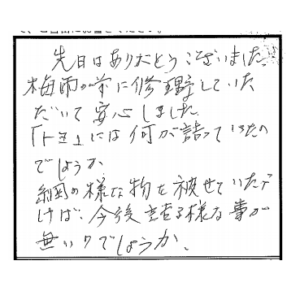 先日はありがとうございました。
梅雨の前に修理していた
だいて安心しました。
「トヨ」には何が詰っていたの
でしょうか
網の様な物を被せていただ
けば、今後

様な事が
無いのでしょうか。